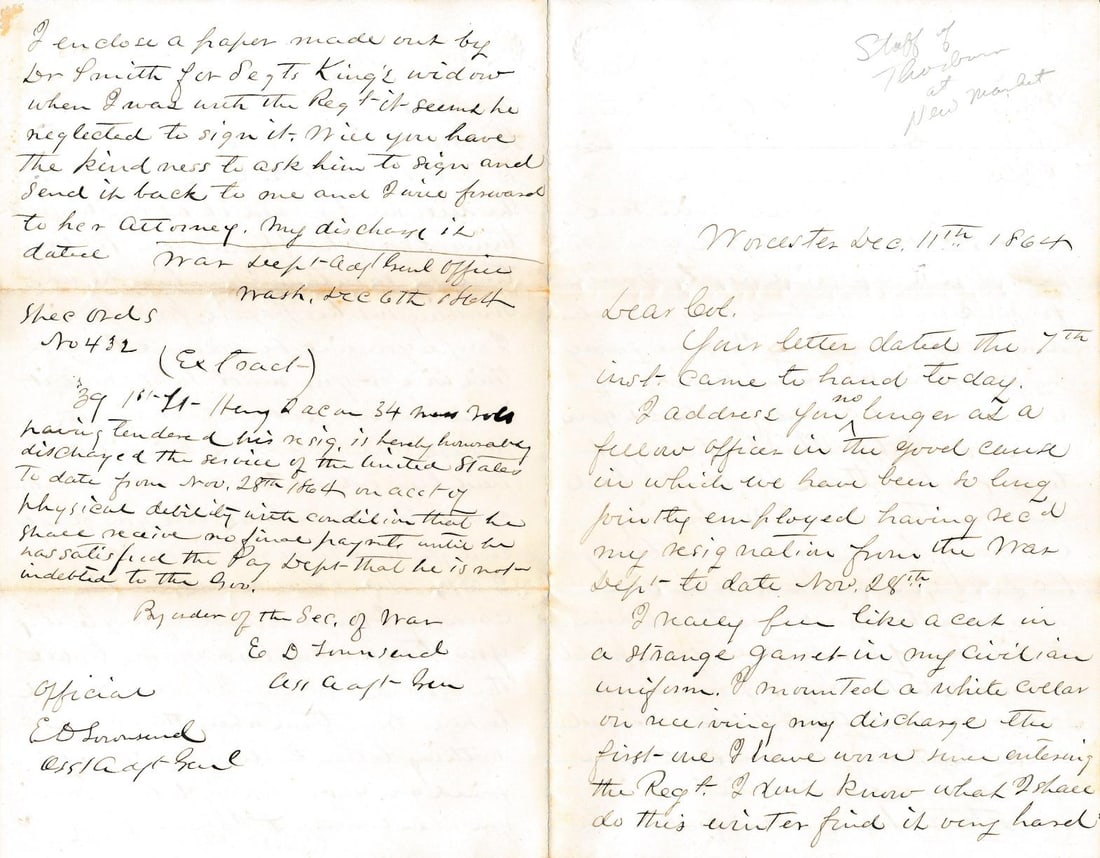 I enclose a paper made out by
Dr Smith for Segts King's widow
when I was with the Regt it seems he
neglected to sign it. Will you have
the kindness to ask him to sign and
send it back to me and I will forward
to her Attorney. My discharge is
dated War Dept Adjt Genl Office
Wash. Dec 6th 1864
Spec Ords
No 432
(Extract)
39 1st Lt Henry Bacon 34 Mass Vols
having tendered his resig. is hereby honorably
discharged the service of the United States
to date from Nov. 28th 1864 on acct of
physical debility with condition that he
shall receive no final paymts until he
has satisfied the Pay Dept that he is not
indebted to the Gov.
By order of the Sec. of War
E D Townsend
Ass Adjt Gen
Official
E D Townsend
Asst Adjt Genl
Staff of
Thoburn
at
New Market
Worcester Dec. 11th 1864
Dear Col.
Your letter dated the 7th
inst. came to hand today.
I address you no longer as a
fellow officer in the good cause
in which we have been so long
jointly employed having rec'd
my resignation from the War
Dept to date Nov. 28th.
I really feel like a cat in
a strange garret in my civilian
uniform. I mounted a white collar
on receiving my discharge the
first one I have worn since entering
the Regt. I dont know what I shall
do this winter find it very hard